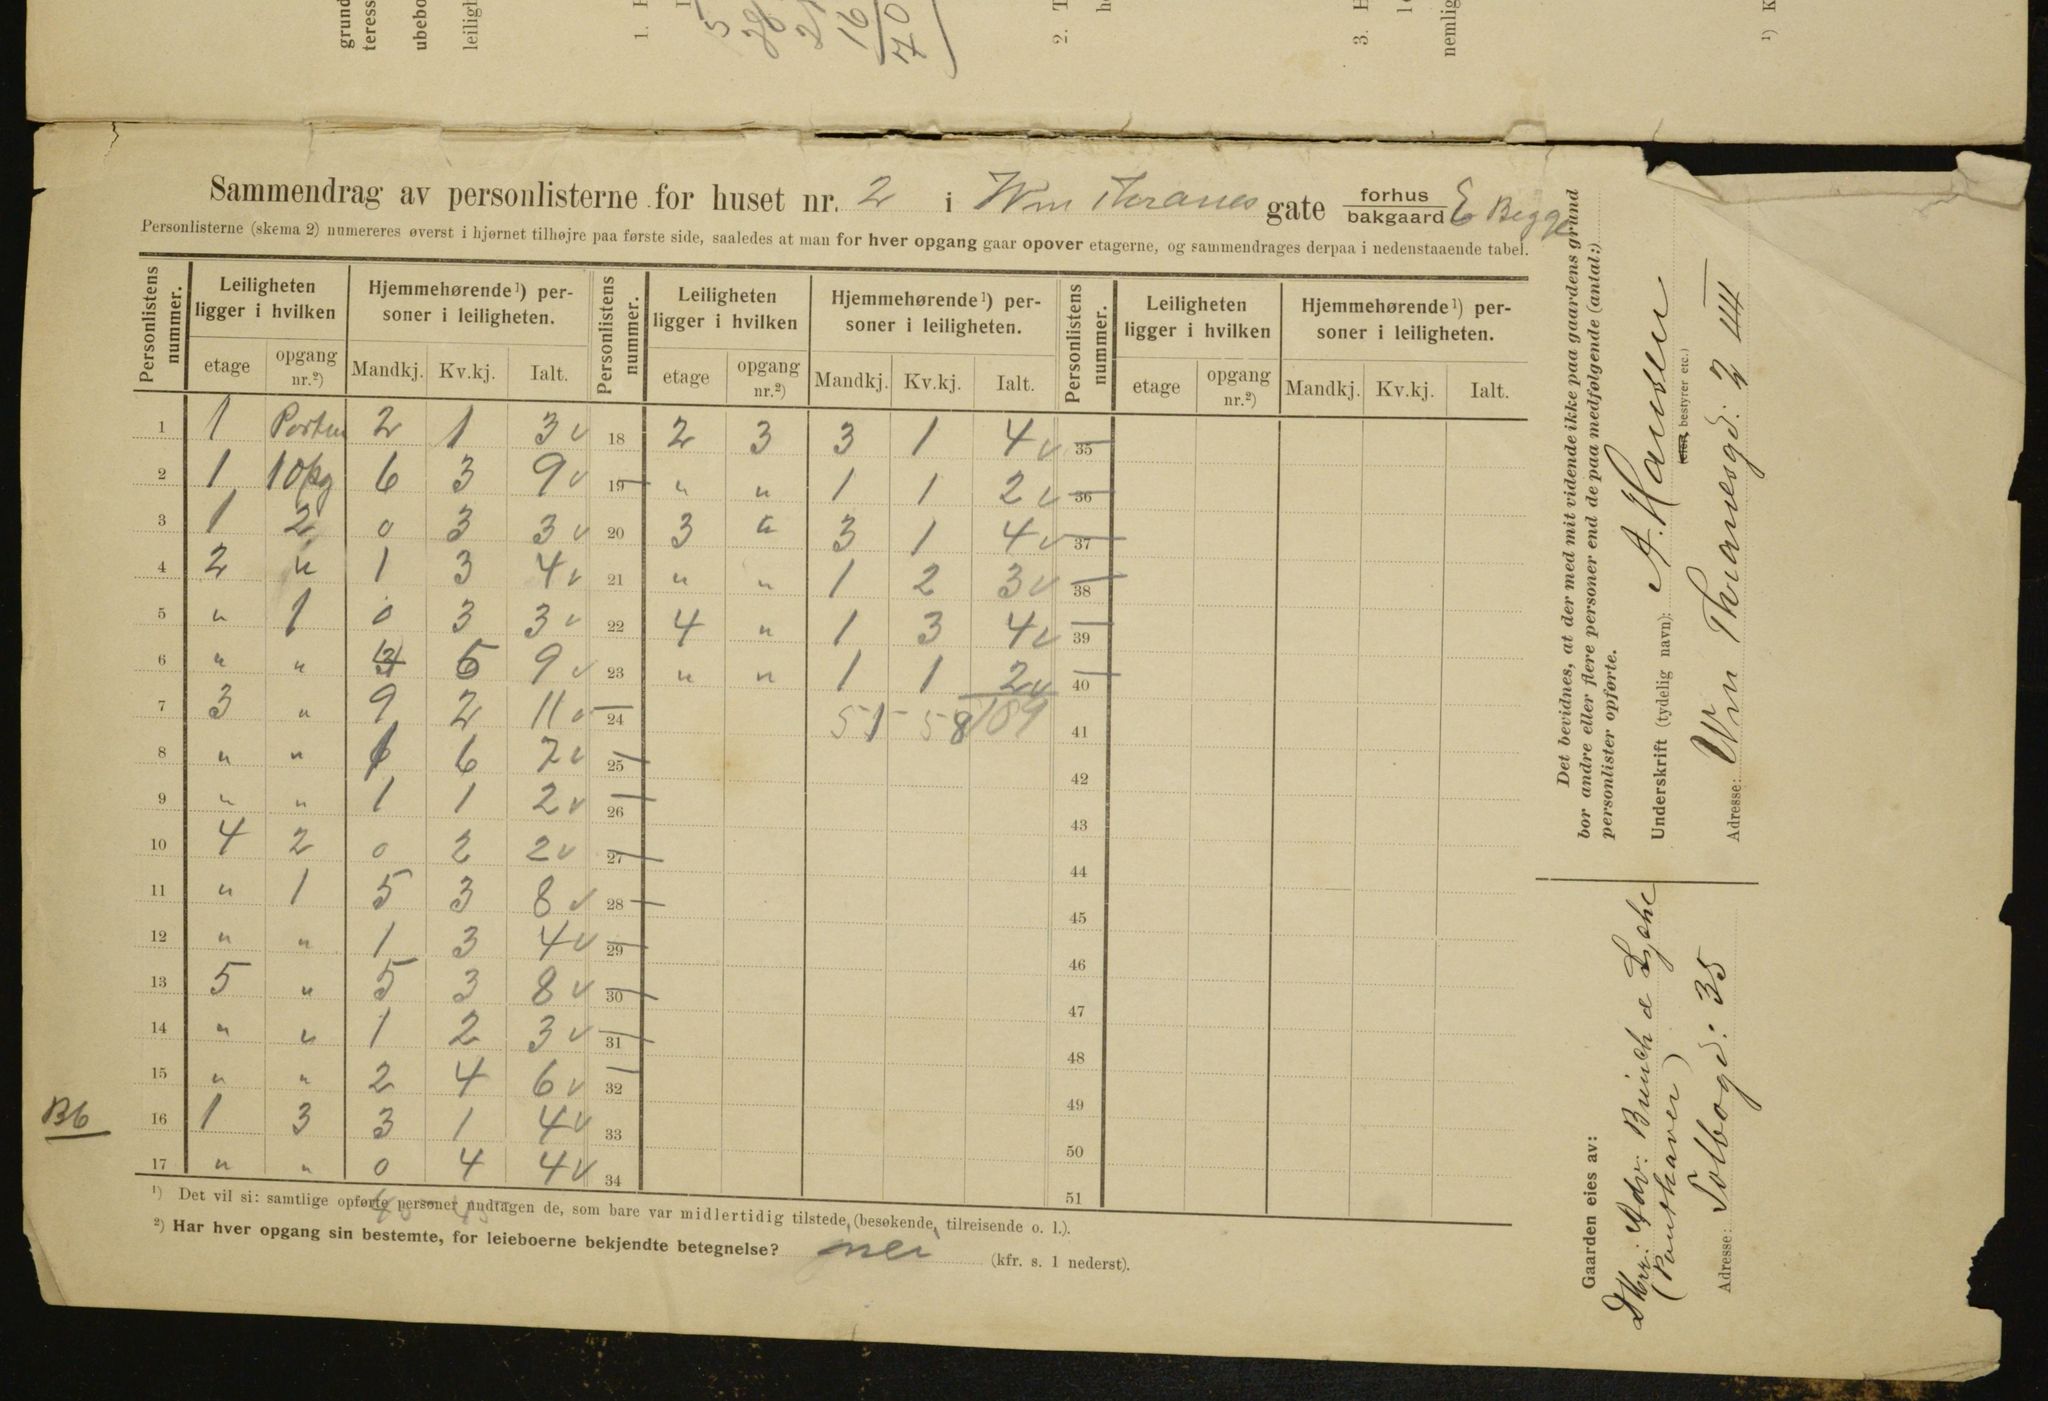 grund
teress
ubebo
leiligh
1. H
5
28
21
16
70
2. T
h
3. H
nemlig
1) K
Sammendrag av personlisterne for huset nr. 2 i Wm Thranes gate forhus / bakgaard E Begge
Personlisterne (skema 2) numereres øverst i hjørnet tilhøjre paa første side, saaledes at man for hver opgang gaar opover etagerne, og sammendrages derpaa i nedenstaaende tabel.
Personlistens nummer. | Leiligheten ligger i hvilken | Hjemmehørende 1) personer i leiligheten. | Personlistens nummer. | Leiligheten ligger i hvilken | Hjemmehørende 1) personer i leiligheten. | Personlistens nummer. | Leiligheten ligger i hvilken | Hjemmehørende 1) personer i leiligheten.
etage | opgang nr. 2) | Mandkj. | Kv.kj. | Ialt. | etage | opgang nr. 2) | Mandkj. | Kv.kj. | Ialt. | etage | opgang nr. 2) | Mandkj. | Kv.kj. | Ialt.
1 | 1 | Porten | 2 | 1 | 3 v | 18 | 2 | 3 | 3 | 1 | 4 v | 35
2 | 1 | 1 Opg | 6 | 3 | 9 v | 19 | " | " | 1 | 1 | 2 v | 36
3 | 1 | 2 | 0 | 3 | 3 v | 20 | 3 | " | 3 | 1 | 4 v | 37
4 | 2 | " | 1 | 3 | 4 v | 21 | " | " | 1 | 2 | 3 v | 38
5 | " | 1 | 0 | 3 | 3 v | 22 | 4 | " | 1 | 3 | 4 v | 39
6 | " | " | | | 9 v | 23 | " | " | 1 | 1 | 2 v | 40
7 | 3 | " | 9 | 2 | 11 v | 24 | | | 51 | 58 | 109 | 41
8 | " | " | 1 | 6 | 7 v | 25 | 42
9 | " | " | 1 | 1 | 2 v | 26 | 43
10 | 4 | 2 | 0 | 2 | 2 v | 27 | 44
11 | " | 1 | 5 | 3 | 8 v | 28 | 45
12 | " | " | 1 | 3 | 4 v | 29 | 46
13 | 5 | " | 5 | 3 | 8 v | 30 | 47
14 | " | " | 1 | 2 | 3 v | 31 | 48
15 | " | " | 2 | 4 | 6 v | 32 | 49
B6
16 | 1 | 3 | 3 | 1 | 4 v | 33 | 50
17 | " | " | 0 | 4 | 4 v | 34 | 51
1) Det vil si: samtlige opførte personer undtagen de, som bare var midlertidig tilstede (besøkende, tilreisende o. l.).
2) Har hver opgang sin bestemte, for leieboerne bekjendte betegnelse? nei (kfr. s. 1 nederst).
Det bevidnes, at der med mit vidende ikke paa gaardens grund
bor andre eller flere personer end de paa medfølgende (antal:)
personlister opførte.
Underskrift (tydelig navn): A. Hansen
bestyrer etc.)
Adresse: Wm Thranesgd. 2 III
Gaarden eies av:
D'Herr: Adv: Brinch &
(Panthaver)
Adresse: Solbogd: 35